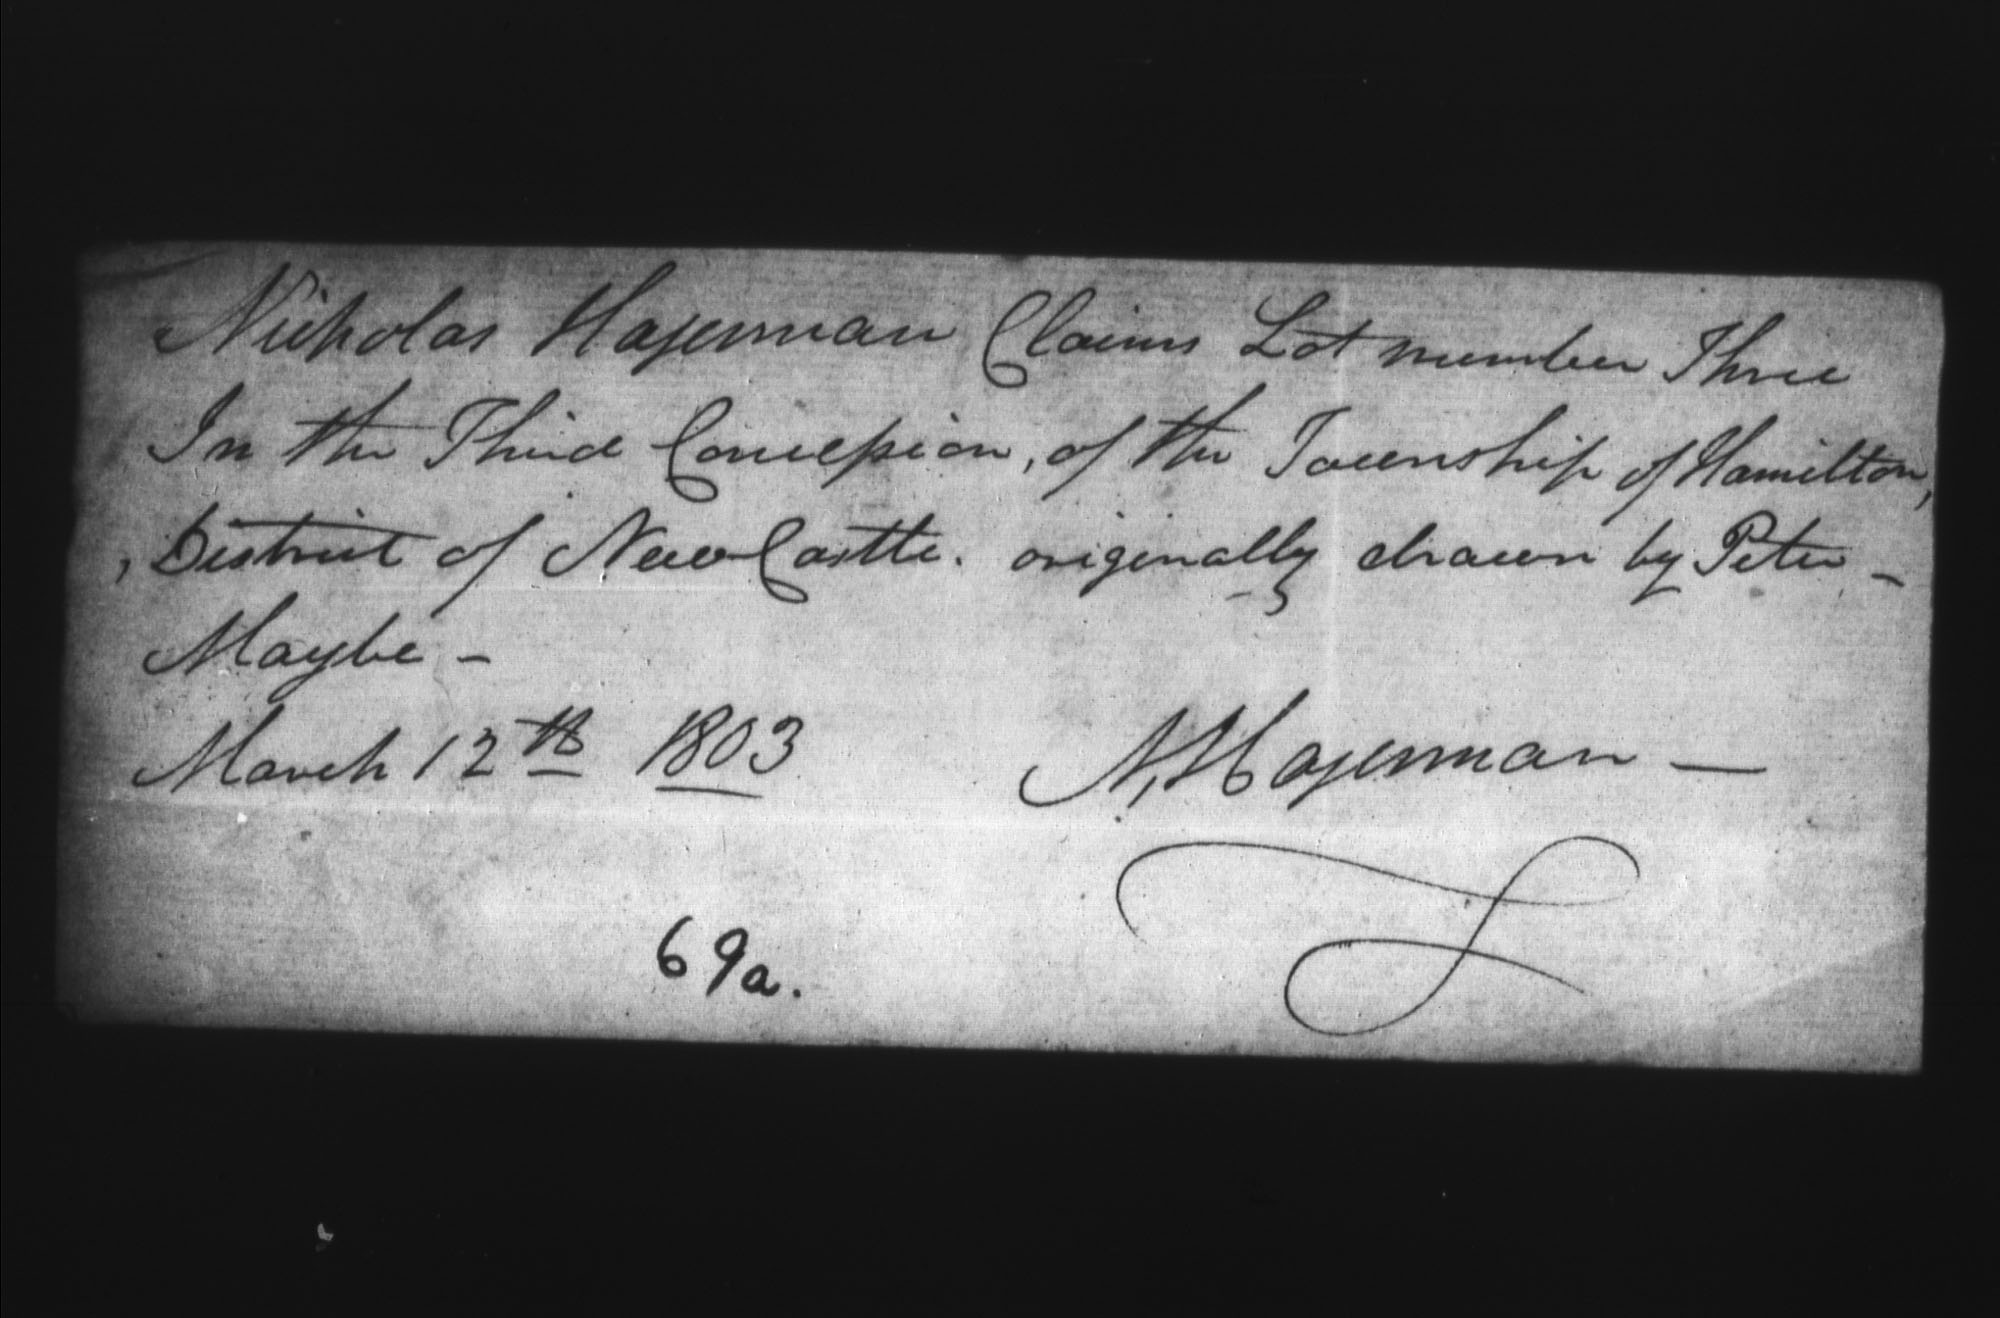 Nicholas Hagerman Claims Lot number Three
In the Third Concession, of the Township of Hamilton,
, District of New Castle. originally drawn by Peter -
Maybe -
March 12th 1803 N, Hagerman -
69a.